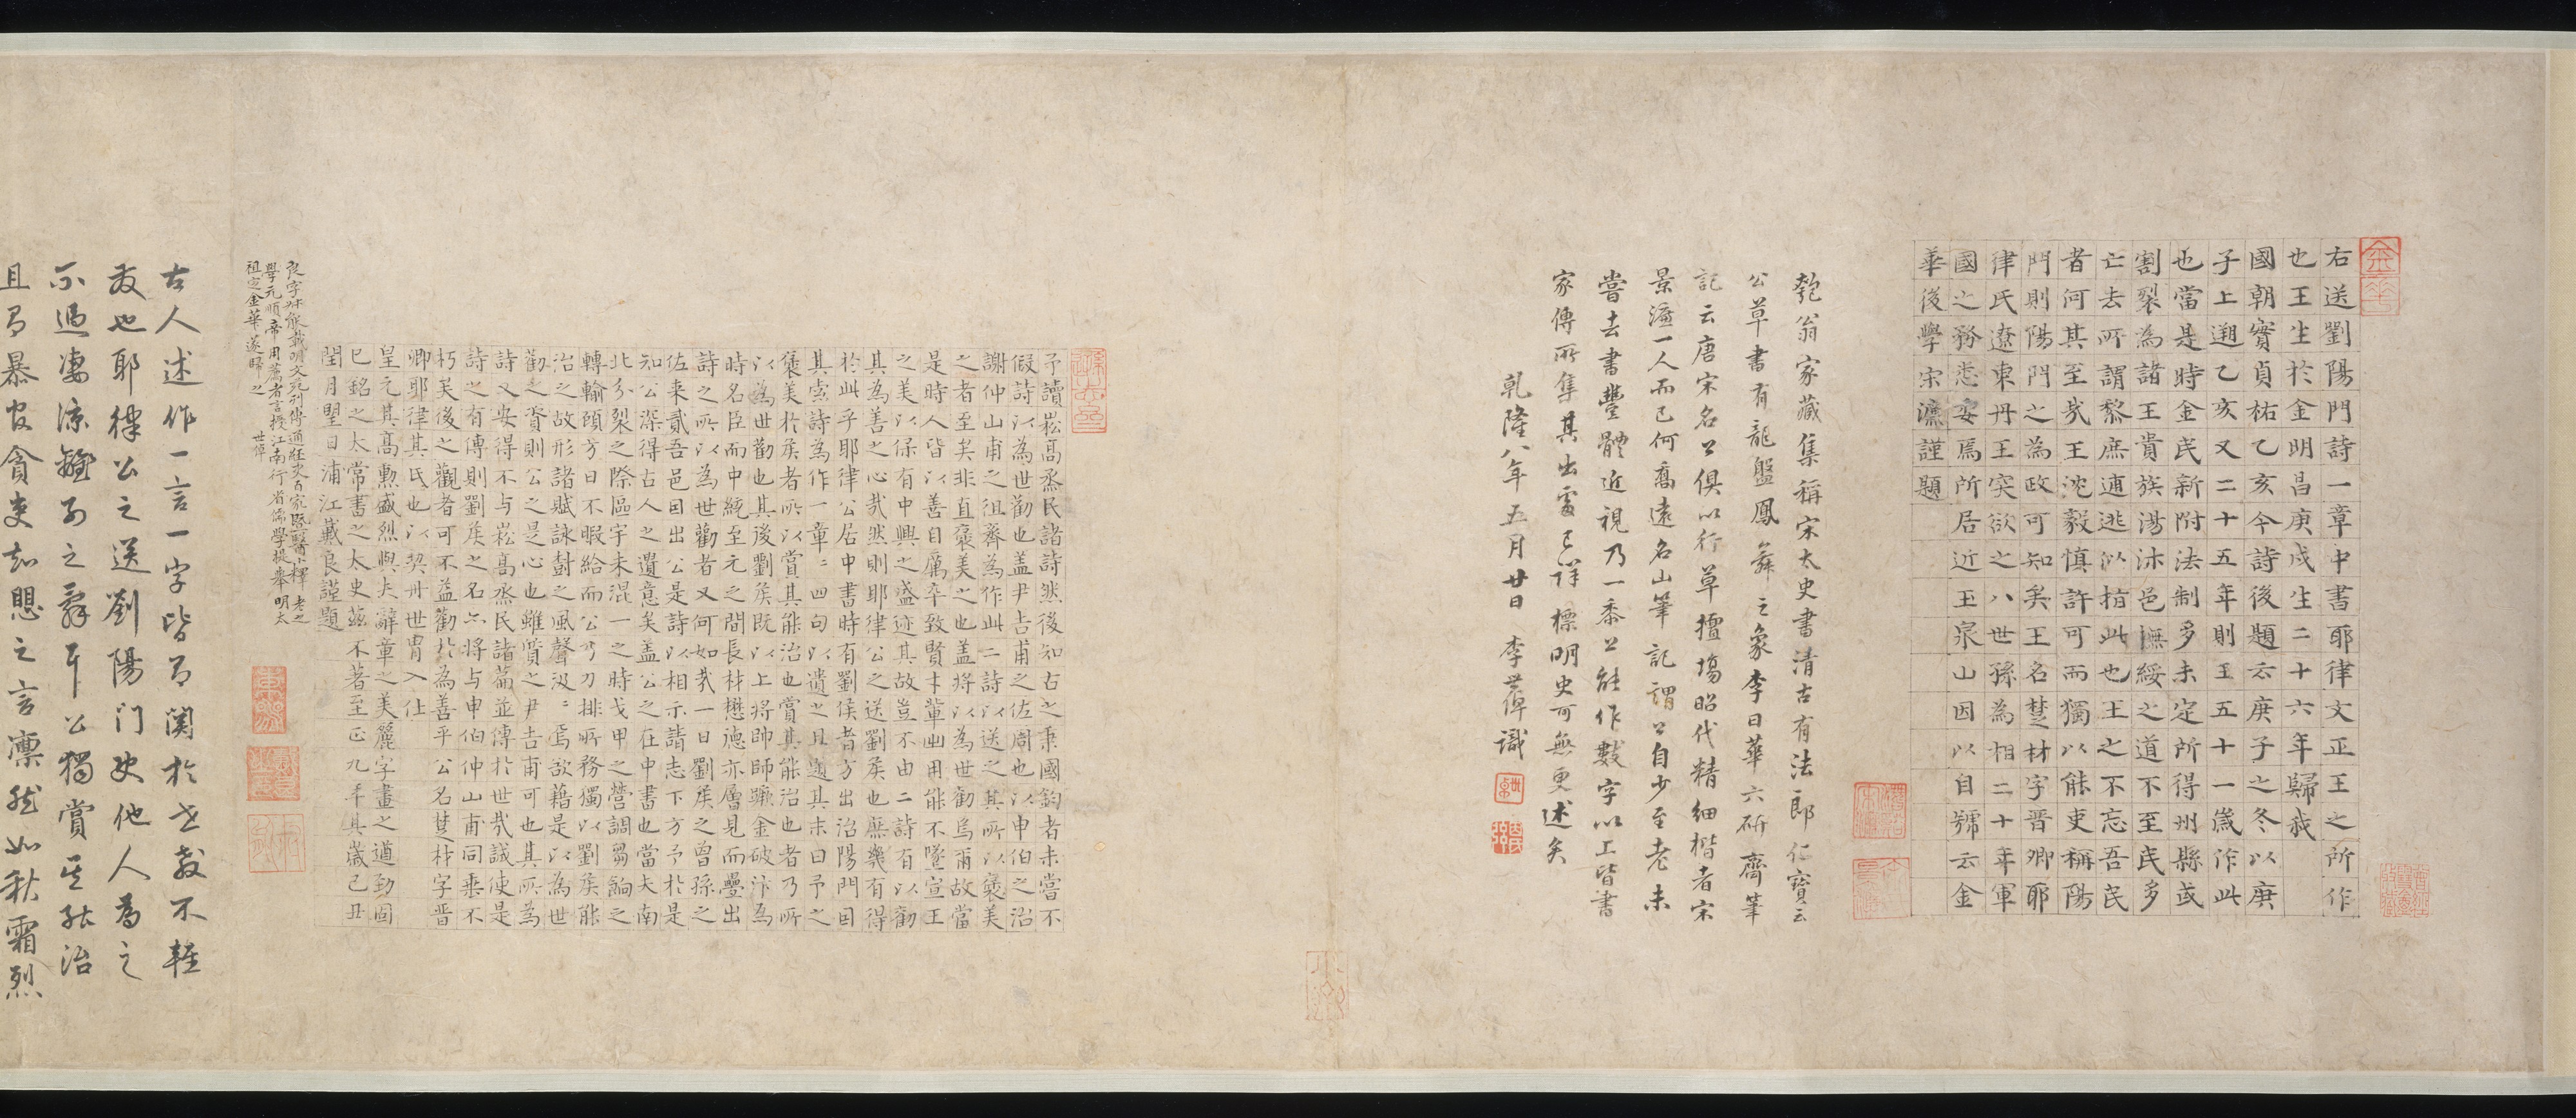 右送劉陽門詩一章中書耶律文正王之所作
也王生於金明昌庚戌生二十六年歸我
國朝實貞祐乙亥今詩後題云庚子之冬以庚
子上遡乙亥又二十五年則王五十一歲作此
也當是時金民新附法制多未定所得州縣或
割裂為諸王貴族湯沐邑憮綏之道不至民多
亡去所謂黎庶逋逃以指此也王之不忘吾民
者何其至哉王沈毅慎許可而獨以能吏稱陽
門則陽門之為政可知矣王名楚材字晉卿耶
律氏遼東丹王突欲之八世孫為相二十年軍
國之務悉安焉所居近玉泉山因以自號云金
華後學宋濂謹題
匏翁家藏集稱宋太史書清古有法郎仁寶云
公草書有龍盤鳳舞之象李日華六研齋筆
記云唐宋名公俱以行草擅塲昭代精細楷者宋
景濂一人而已何喬遠名山筆記謂公自少至老未
嘗去書豐體近視乃一黍上能作數字以上皆書
家傳所集其出處已詳標明史可無更述矣
乾隆八年五月廿日 李世倬識
予讀崧高烝民諸詩然後知古之秉國鈞者未嘗不
假詩以為世勸也盖尹吉甫之佐周也以申伯之治
謝仲山甫之徂齊為作此二詩以送之其所以褒美
之者至矣非直褒美之也盖將以為世勸焉爾故當
是時人皆以善自厲卒致賢才輩出用能不墜宣王
之美以保有中興之盛迹其故豈不由二詩有以勸
其為善之心哉然則耶律公之送劉矦也庶幾有得
於此乎耶律公居中書時有劉侯者方出治陽門因
其索詩為作一章二四句以遺之且題其末曰予之
褒美於矦者所以賞其能治也賞其能治也者乃所
以為世勸也其後劉矦既以上將帥師蹶金破汴為
時名臣而中統至元之間長材懋德亦層見而疊出
詩之所以為世勸者又何如哉一日劉矦之曾孫之
佐来貳吾邑因出公是詩以相示諸志下方予於是
知公深得古人之遺意矣盖公之在中書也當夫南
北分裂之際區宇未混一之時戈甲之營調芻餉之
轉輸頤方日不暇給而公乃刀排所務獨以劉矦能
治之故形諸賦詠尌之風聲汲二焉欲藉是以為世
勸之資則公之是心也雖質之尹吉甫可也其所為
詩又安得不与崧高烝民諸篇並傳於世哉誠使是
詩之有傳則劉矦之名亦將与申伯仲山甫同垂不
朽矣後之觀者可不益勸於為善乎公名楚材字晉
卿耶律其氏也以契丹世胄入仕
皇元其高勲盛烈與夫辭章之美麗字畫之遒勁固
已銘之太常書之太史茲不著至正九年其歲己丑
閏月朢日浦江戴良謹題
良字叔能載明文苑列傳通經史百家暨醫卜釋老之
學元順帝用薦者言授江南行省儒學提舉明太
祖定金華遂歸之 世倬
古人述作一言一字皆有関於世教不輕
發也耶律公之送劉陽门使他人為之
不過淒涼離别之辭耳公獨賞其能治
且有暴官貪吏知愳之言凛然如秋霜烈